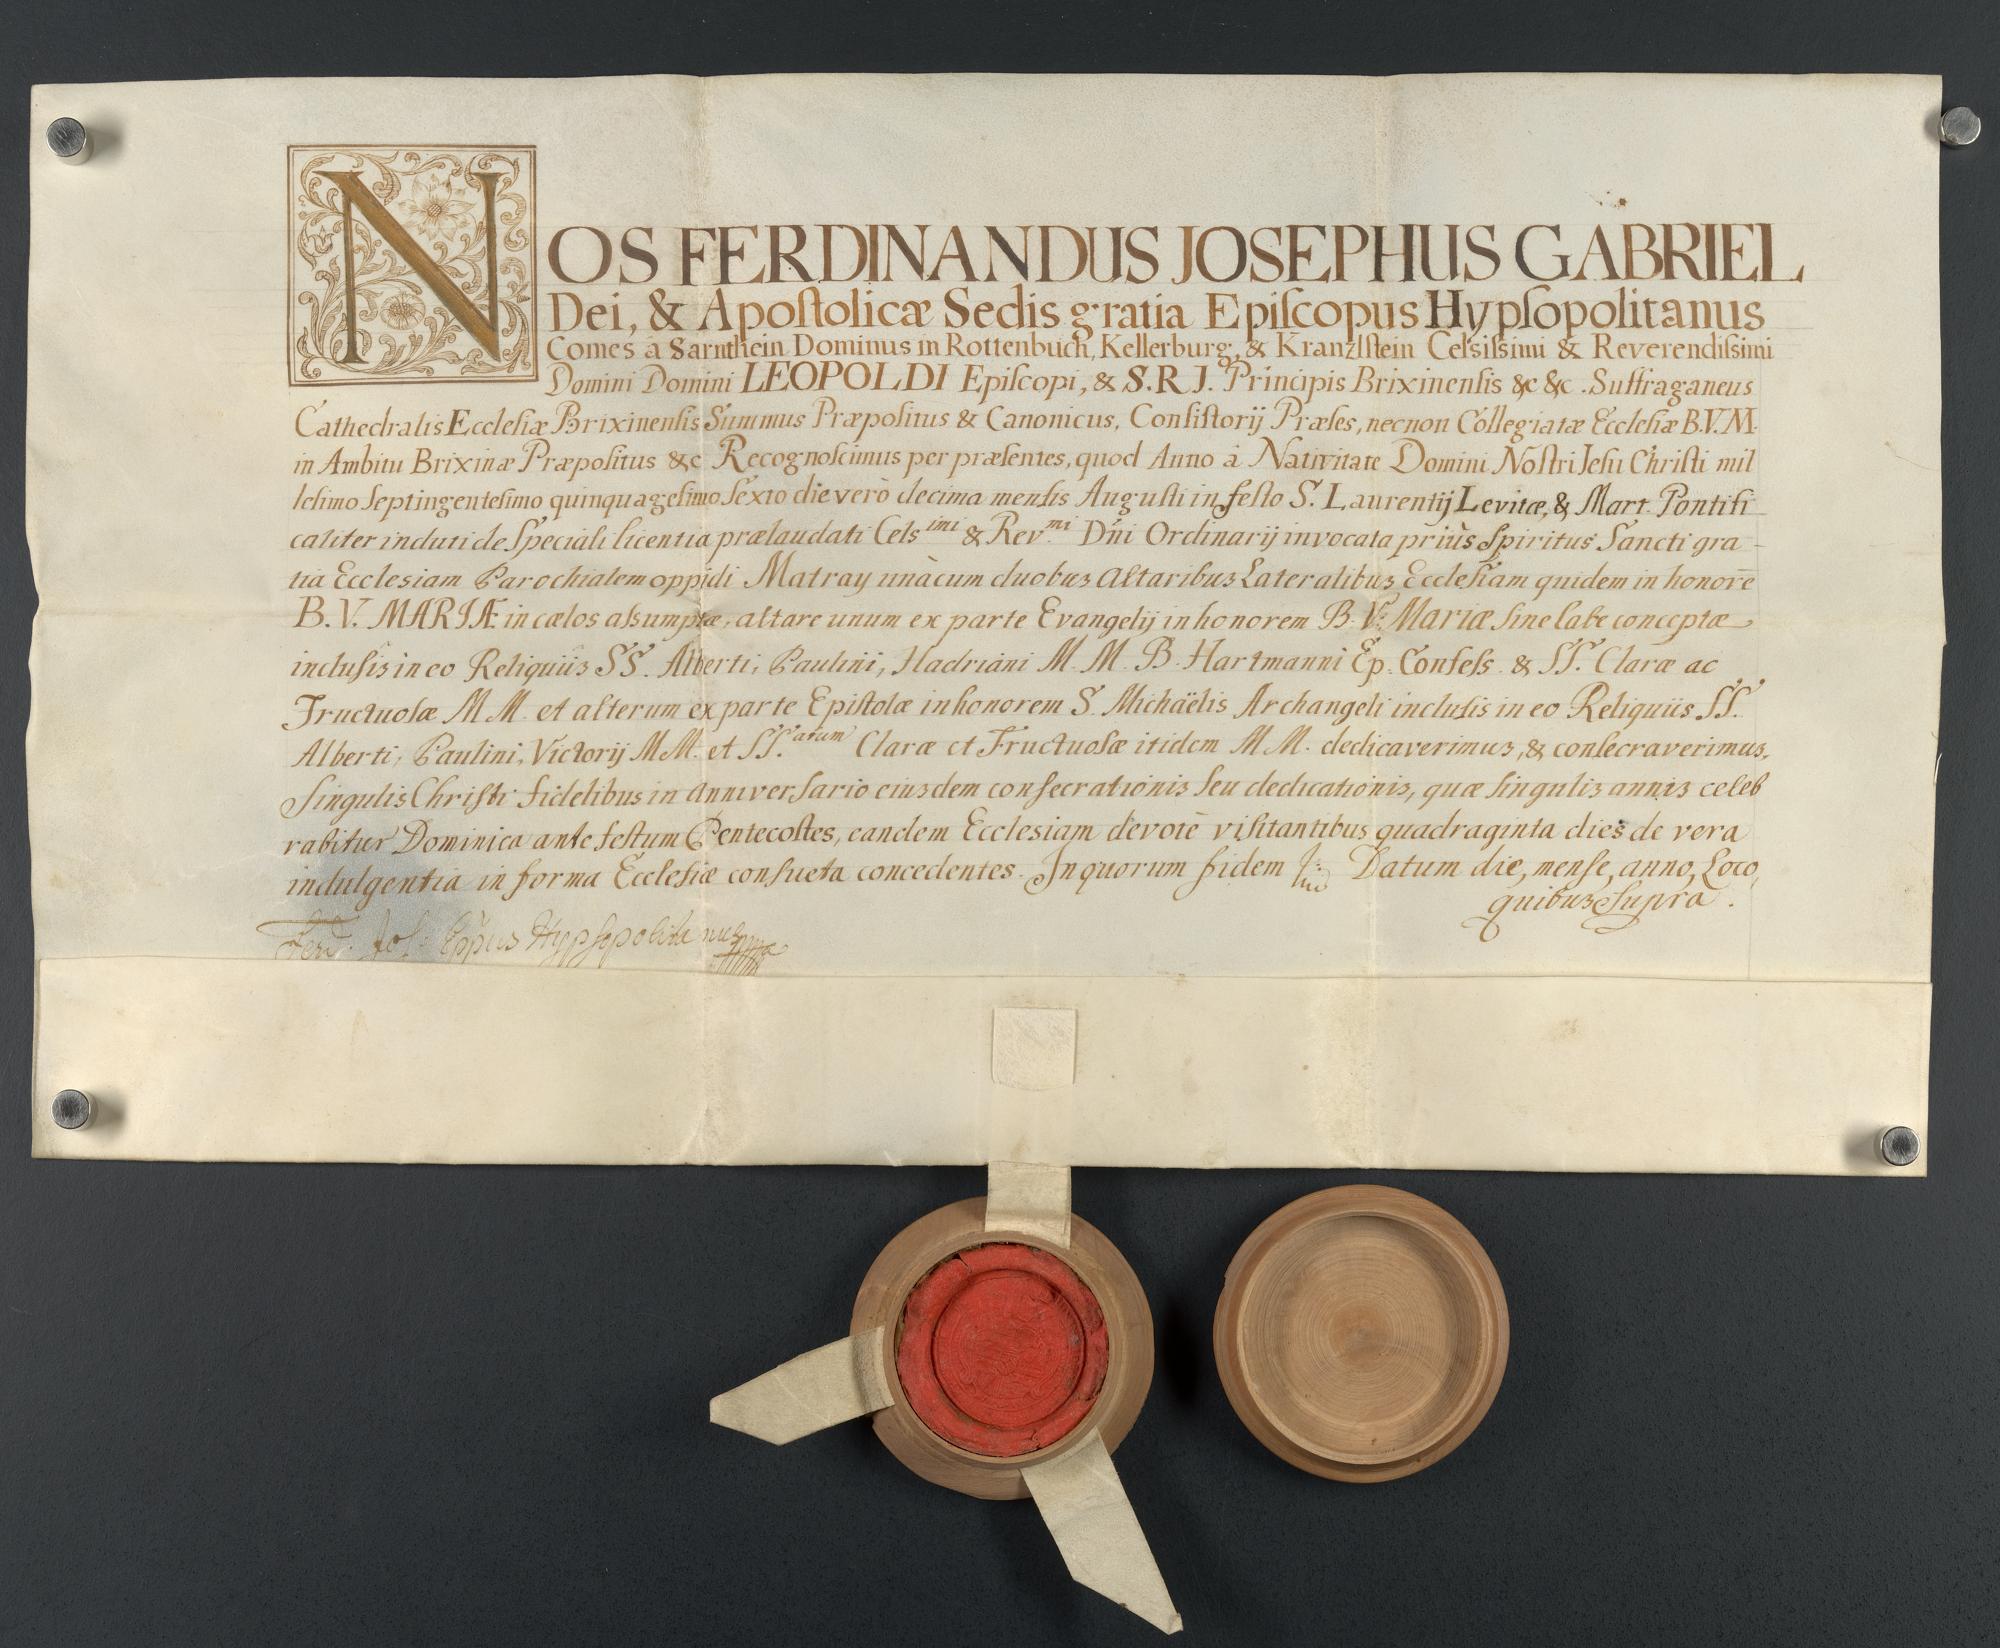 NOS FERDINANDUS JOSEPHUS GABRIEL
Dei, & Apoſtolicæ Sedis gratia Epiſcopus Hypſopolitanus
Comes à Sarnthein Dominus in Rottenbuch, Kellerburg, & Kranzlſtein Celsiſsimi & Reverendiſsimi
Domini Domini LEOPOLDI Epiſcopi, & S. R. J. Principis Brixinenſis &c &c. Suffraganeus
Cathedralis Eccleſiæ Brixinenſis Summus Præpoſitus & Canonicus, Conſiſtorij Præſes, necnon Collegiatæ Eccleſiæ B.V.M.
in Ambitu Brixinæ Præpoſitus &c Recognoſcimus per præſentes, quod Anno à Nativitate Domini Noſtri Jeſu Chriſti mil
leſimo ſeptingenteſimo quinquageſimo ſexto die verò decima menſis Auguſti in feſto S. Laurentij Levitæ, & Mart. Pontifi
caliter induti de ſpeciali licentia prælaudati Cels.imi & Rev.mi Dñi Ordinarij invocata priùs Spiritus Sancti gra-
tia Ecclesiam Parochialem oppidi Matray unàcum duobus Altaribus Lateralibus Eccleſiam quidem in honorē
B. V. MARIÆ in cælos aſsumptæ, altare unum ex parte Evangelij in honorem B. V. Mariæ ſine labe conceptæ
incluſis in eo Reliquiis SS. Alberti, Paulini, Hadriani M. M. B. Hartmanni Ep. Confeſs. & SS. Claræ ac
Fructuoſæ M M. et alterum ex parte Epiſtolæ in honorem S. Michaëlis Archangeli incluſis in eo Reliquiis SS.
Alberti, Paulini, Victorij M M. et SS.arum Claræ et Fructuoſæ itidem M M. dedicaverimus, & conſecraverimus,
Singulis Chriſti fidelibus in Anniverſario eiusdem conſecrationis ſeu dedicationis, quæ ſingulis annis celeb
rabitur Dominica ante feſtum Pentecoſtes, eandem Ecclesiam devotè viſitantibus quadraginta dies de vera
indulgentia in forma Eccleſiæ conſueta concedentes. In quorum fidem Datum die, menſe, anno, Loco,
quibus Supra.
Ferd. Joſ: Epp̃us Hypſopolitanus